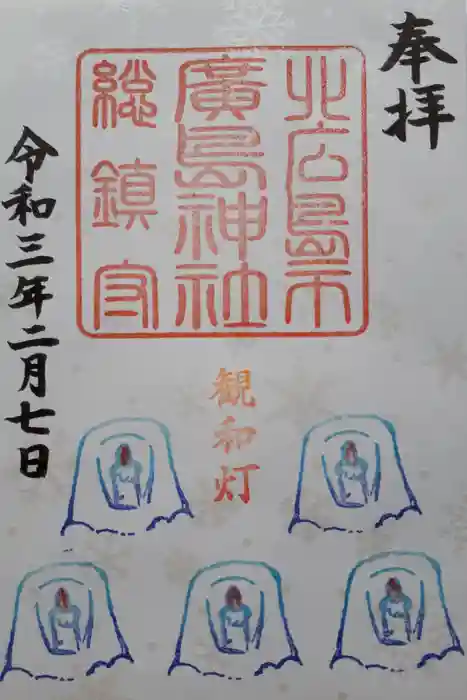 奉拝
北広島市
廣島神社
総鎮守
観和灯
令和三年二月七日